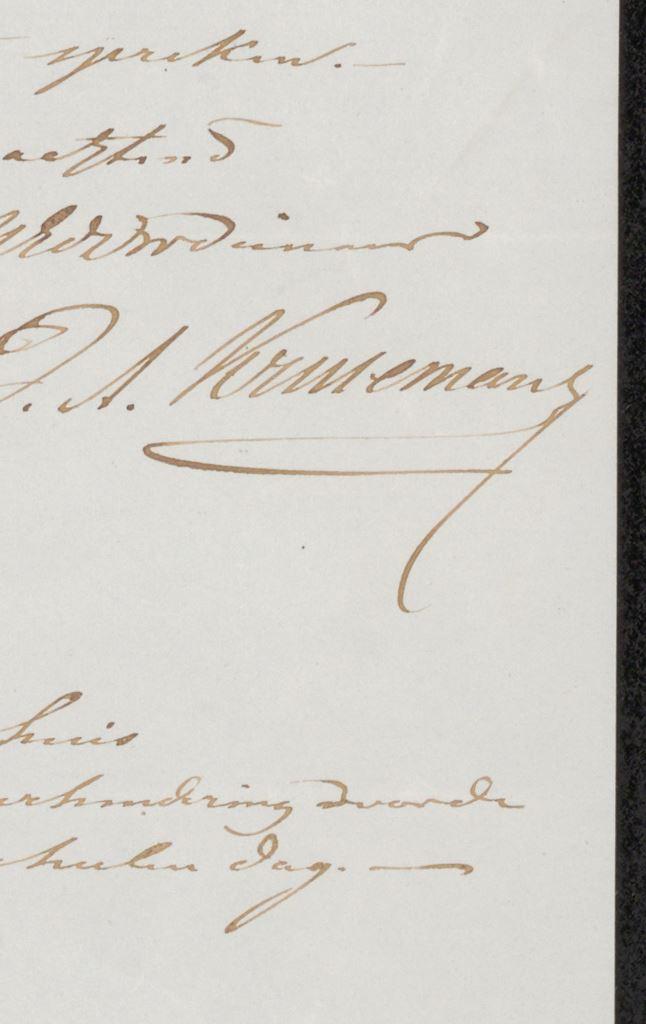 spreken. —
achtend
UEd Dw Dienaar
J. A. Kruseman
huis
verhindering worde
geheelen dag. —